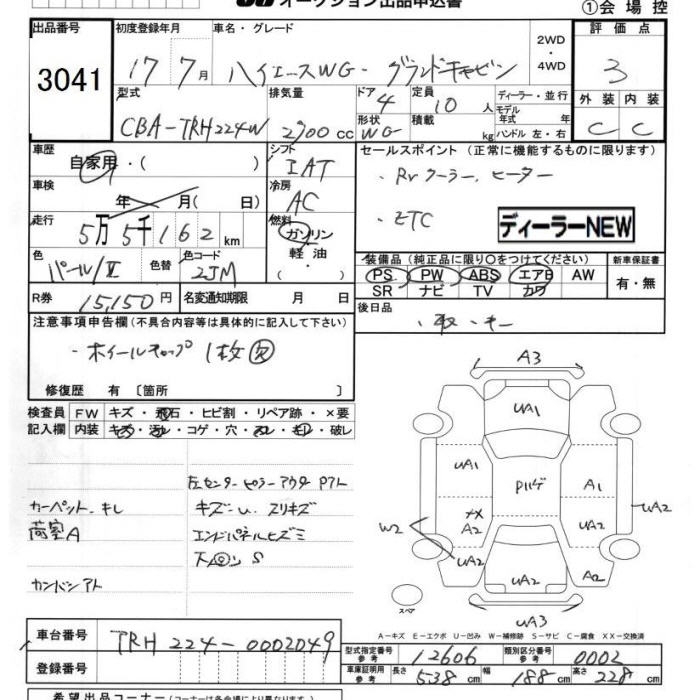 オークション出品申込書
①会場控
出品番号 初度登録年月 車名・グレード 2WD・4WD 評価点
3041 17 7月 ハイエースWG-グランドキャビン 3
型式 排気量 ドア 4 定員 10人 ディーラー・並行 外装 内装
モデル年式 年
CBA-TRH224W 2700cc 形状 WG 積載 kg ハンドル 左・右 C C
車歴 自家用・( ) シフト IAT セールスポイント(正常に機能するものに限ります)
車検 年 月( 日) 冷房 AC ・Rrクーラー、ヒーター
走行 5万5千162km 燃料 ガソリン・軽油・( ) ・ETC ディーラーNEW
色 パール/II 色替 色コード 2JM 装備品(純正品に限り○をつけてください) 新車保証書
PS PW ABS エアB AW 有・無
SR ナビ TV カワ
R券 15,150円 名変通知期限 月 日 後日品
注意事項申告欄(不具合内容等は具体的に記入して下さい) ・取・キー
・ホイールキャップ 1枚欠
修復歴 有〔箇所 〕
検査員 FW キズ・飛石・ヒビ割・リペア跡・×要
記入欄 内装 キズ・汚レ・コゲ・穴・スレ・キレ・破レ
左センターピラーアウタ Pアト
カーペット、キレ キズ-U、スリキズ
荷室A エンドパネルヒズミ
S
カンドンアト
A3
UA1
UA1 Pルーゲ A1
××
A2 UA2 UA2
W2
UA2 UA2 A2
スペア
UA3
A-キズ E-エクボ U-凹み W-補修跡 S-サビ C-腐食 XX-交換済
車台番号 TRH 224-0002049
型式指定番号 参考 12606 類別区分番号 参考 0002
登録番号 車庫証明用 参考 長さ 538cm 幅 188cm 高さ 228cm
希望出品コーナー(コーナーは各会場により異なります)